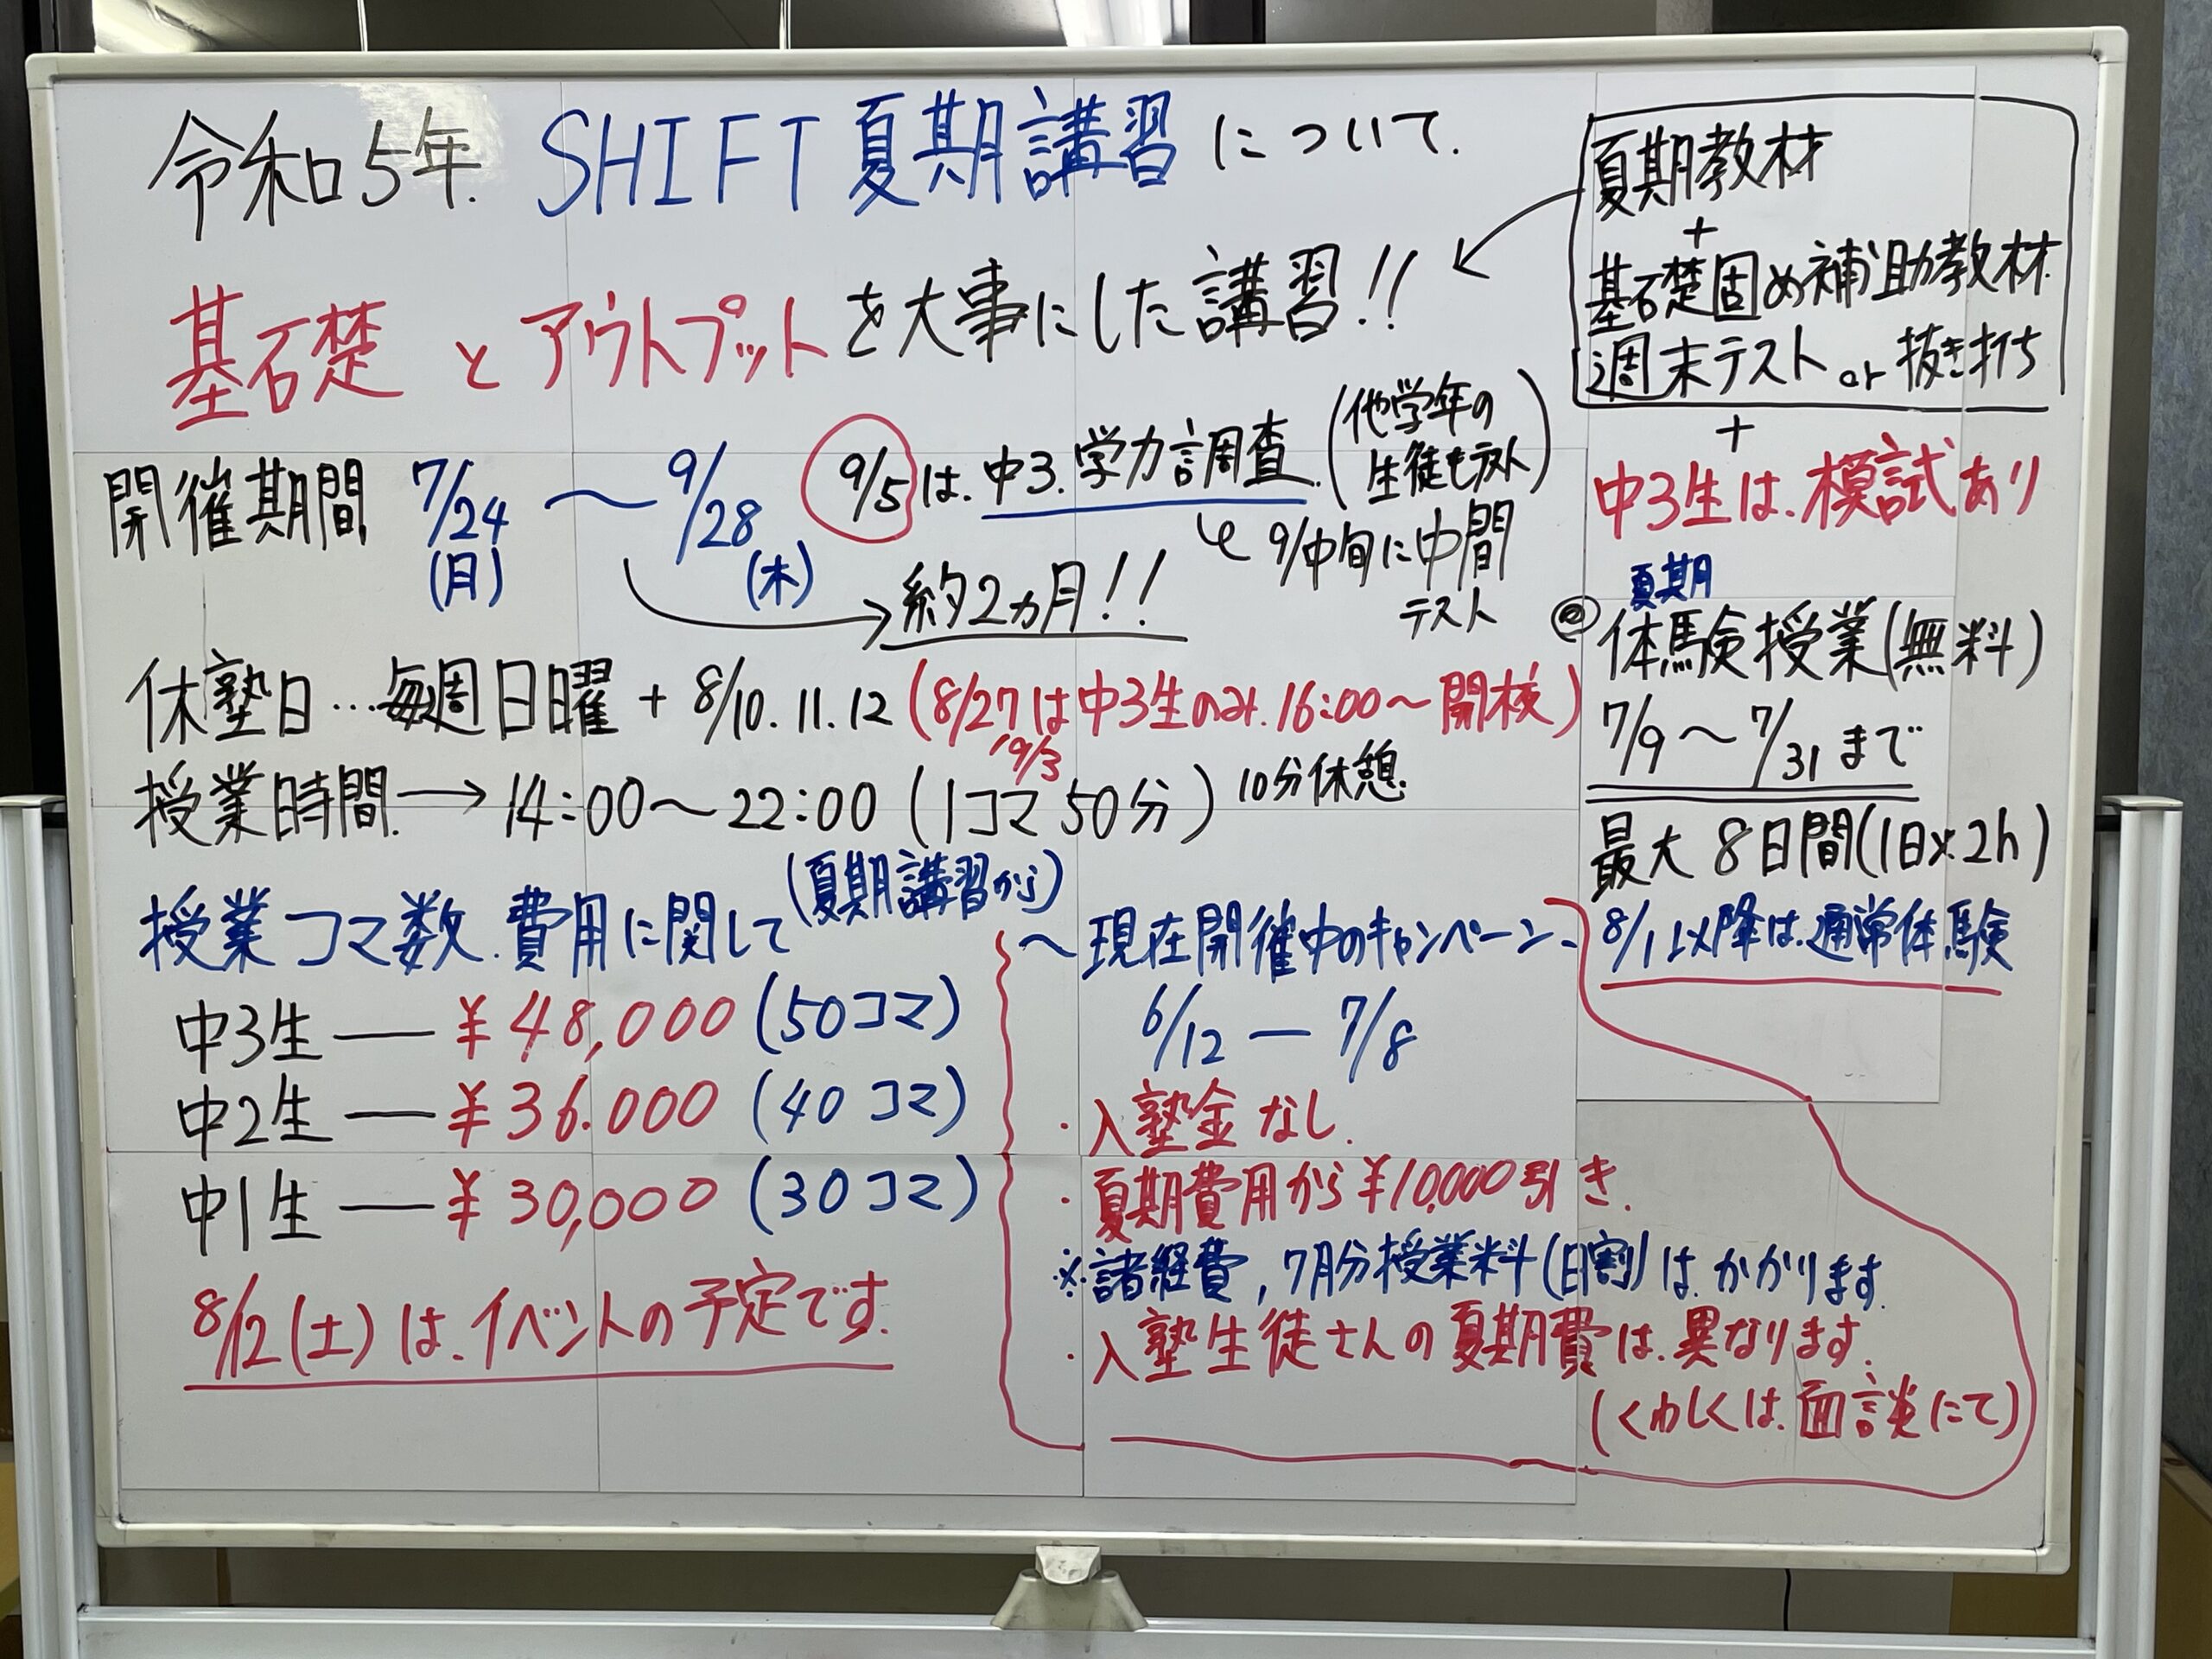 令和5年. SHIFT 夏期講習 について.
基礎 と アウトプット を大事にした講習!!
夏期教材
+
基礎固め補助教材
週末テスト or 抜き打ち
+
中3生は.模試あり
開催期間 7/24 ～ 9/28
(月) (木)
9/5 は.中3.学力調査.
(他学年の
生徒も)
9/中旬に中間
テスト
約2ヵ月!!
休塾日…毎週日曜 + 8/10.11.12 (8/27は中3生のみ.16:00～開校)
'9/3
授業時間.→ 14:00～22:00 (1コマ50分) 10分休憩.
夏期
体験授業(無料)
7/9～7/31まで
最大 8日間(1日×2h)
8/1以降は.通常体験
授業コマ数.費用に関して (夏期講習から)
中3生 — ¥48,000 (50コマ)
中2生 — ¥36.000 (40コマ)
中1生 — ¥30,000 (30コマ)
8/12(土)は.イベントの予定です.
～現在開催中のキャンペーン～
6/12 — 7/8
・入塾金なし.
・夏期費用から¥10,000引き.
※諸経費,7月分授業料(日割)は.かかります.
・入塾生徒さんの夏期費は.異なります.
(くわしくは.面談にて)